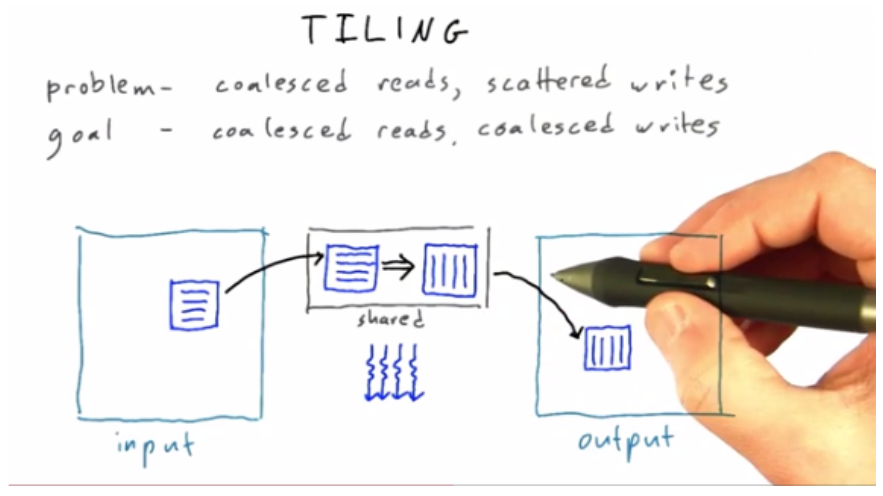 TILING
problem- coalesced reads, scattered writes
goal - coalesced reads, coalesced writes
shared
input
output